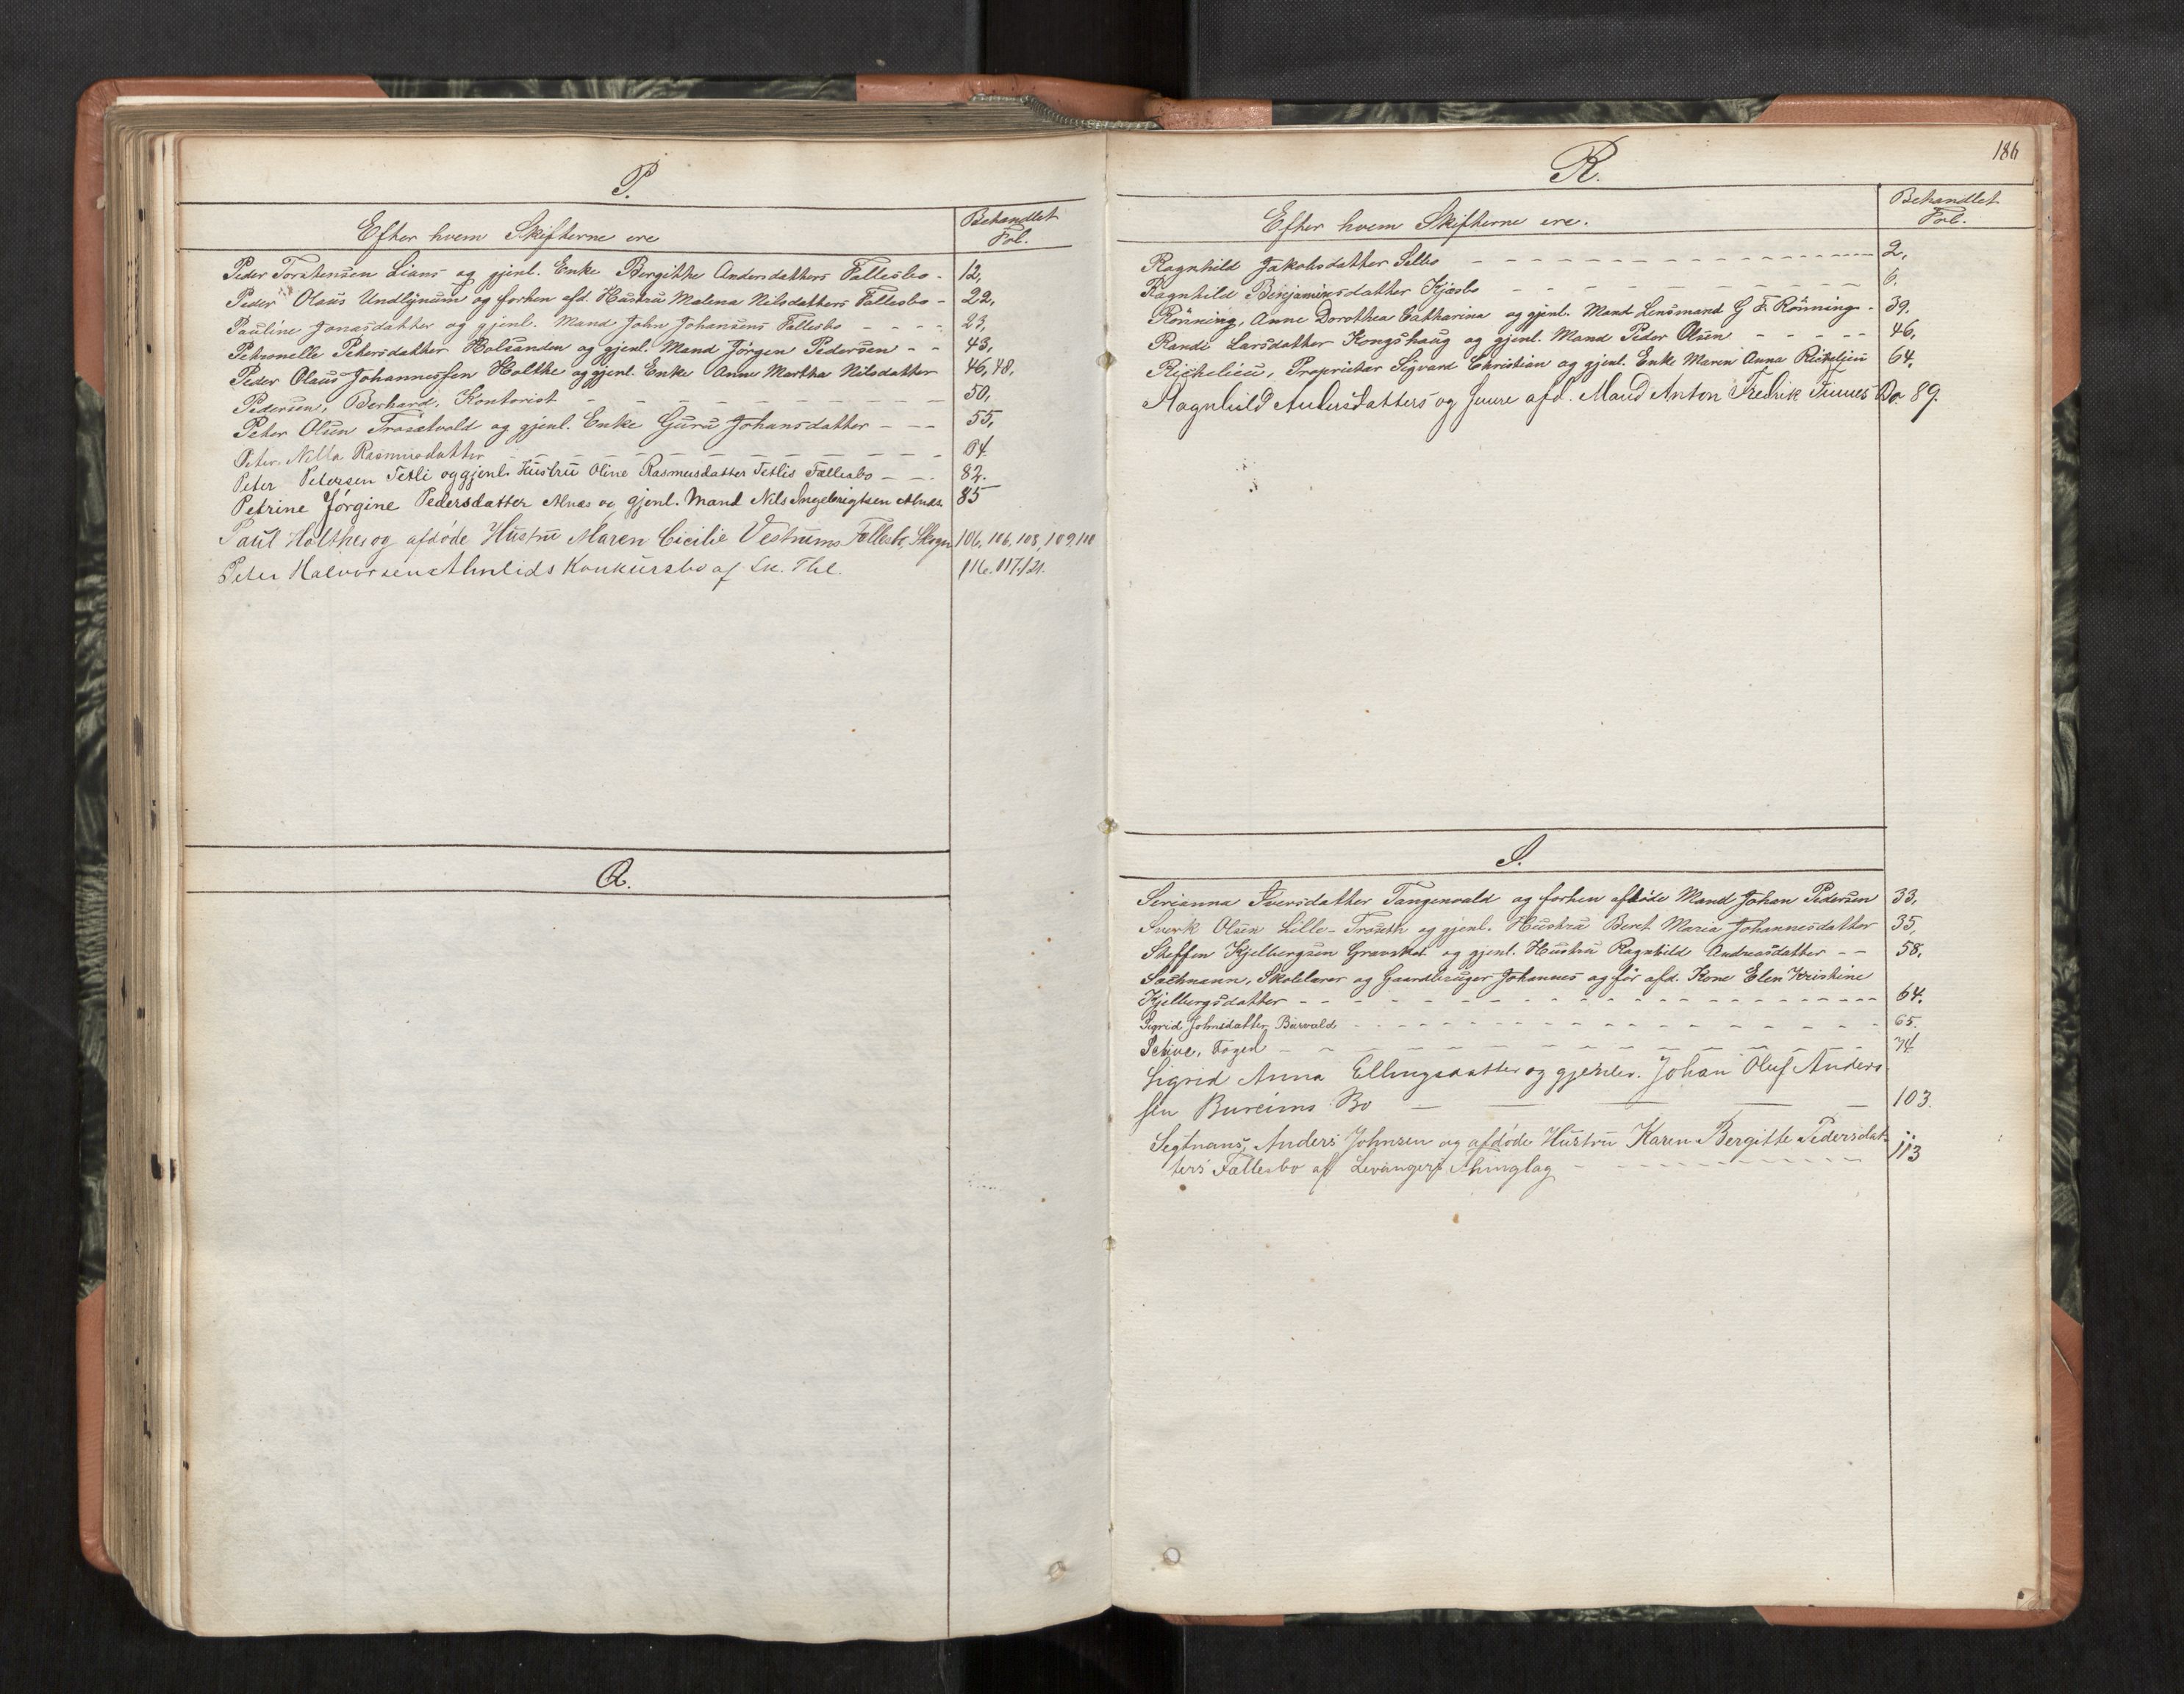 P.
Efter hvem Skifterne ere
Behandlet
Fol.
Peder Torstensen Lians og gjenl. Enke Bergitthe Andersdatters Fallesbo - 12,
Peder Olaus Undlynum og forhen afd. Hustru Malena Nilsdatters Fallesbo - 22,
Pauline Jonasdatter og gjenl. Mand John Johansens Fallesbo - - - - 23,
Petronelle Petersdatter Holsanden og gjenl. Mand Jörgen Pedersen - - 43,
Peder Olaus Johannessen Holthe og gjenl. Enke Anne Martha Nilsdatter 46, 48,
Pedersen, Berhard, Kontorist - - - - - - - - - 50,
Peter Olsen Trosætvold og gjenl. Enke Guru Johansdatter - - - 55,
Peter Nilla Rasmusdatter - - - - - - - - - 64
Peter Petersen Tetli og gjenl. Hustru Oline Rasmusdatter Tetlis Fællesbo - - - 82.
Petrine Jörgine Pedersdatter Alnæs og gjenl. Mand Nils Ingebrigtsen Alnæs. 85
Paul Holthes og afdöde Hustru Maren Cicilie Vestrums Fællesb, Skogn 106, 106, 108, 109, 110
Peter Halvorsen Almlids Konkursbo af Sk. Thl. 116. 117. 121.
Q.
186
R.
Efter hvem Skifterne ere.
Behandlet
Fol.
Ragnhild Jakobsdatter Selbo - - - - - - - - - - 2,
Ragnhild Benjaminsdatter Kjæsbo - - - - - - - - - 6.
Rönning, Anne Dorothea Catharina og gjenl. Mand Lensmand G F. Rönning - 39,
Randi Larsdatter Kongshaug og gjenl. Mand Peder Olsen - - - - - 46,
Richelieu, Proprietær Sigvard Christian og gjenl. Enke Maren Anna Richelieu 64,
Ragnhild Andersdatters og forre afd. Mand Anton Fredrik Finnes Bo 89.
S.
Serianna Iversdatter Tangenvald og forhen afdöde Mand Johan Pedersen 33,
Sverk Olsen Lille-Troseth og gjenl. Hustru Beret Maria Johannesdatter 35,
Steffen Kjelbergsen Gravsket og gjenl. Hustru Ragnhild Andreasdatter - - 58,
Sachmann, Skolelærer og Gaardbruger Johannes og før afd. Kone Elen Kristine
Kjelbergsdatter - - - - - - - - - - - - 64.
Sigrid Johnsdatter Burvald - - - - - - - - - - 65.
Schive, Foged - - - - - - - - - - 74
Sigrid Anna Ellingsdatter og gjenlev. Johan Oluf Anders
sen Bureims Bo - - - - - 103.
Segtnans, Anders Johnsen og afdöde Hustru Karen Bergitte Pedersdat-
ters Fællesbo af Levangers Thinglag - - - - - - - - 113